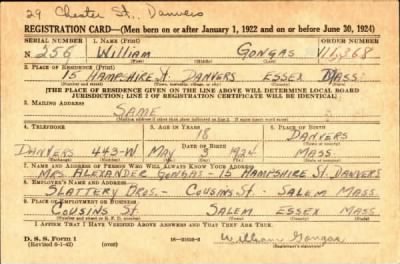 29 Chester St., Danvers
REGISTRATION CARD—(Men born on or after January 1, 1922 and on or before June 30, 1924)
SERIAL NUMBER 1. NAME (Print) ORDER NUMBER
N 256 William GONGAS 11,868
(First) (Middle) (Last)
2. PLACE OF RESIDENCE (Print)
15 HAMPSHIRE St. DANVERS ESSEX MASS
[THE PLACE OF RESIDENCE GIVEN ON THE LINE ABOVE WILL DETERMINE LOCAL BOARD
JURISDICTION; LINE 2 OF REGISTRATION CERTIFICATE WILL BE IDENTICAL]
3. MAILING ADDRESS
SAME
4. TELEPHONE 5. AGE IN YEARS 6. PLACE OF BIRTH
18 DANVERS
DATE OF BIRTH
DANVERS 443-W MAY 1924 MASS
7. NAME AND ADDRESS OF PERSON WHO WILL ALWAYS KNOW YOUR ADDRESS
MRS. ALEXANDER GONGAS - 15 HAMPSHIRE St. DANVERS
8. EMPLOYER'S NAME AND ADDRESS
SLATTERY BROS. - COUSINS St. SALEM MASS.
9. PLACE OF EMPLOYMENT OR BUSINESS
COUSINS St SALEM ESSEX MASS
I AFFIRM THAT I HAVE VERIFIED ABOVE ANSWERS AND THAT THEY ARE TRUE.
D. S. S. Form 1 (over) William Gongas
(Registrant's signature)